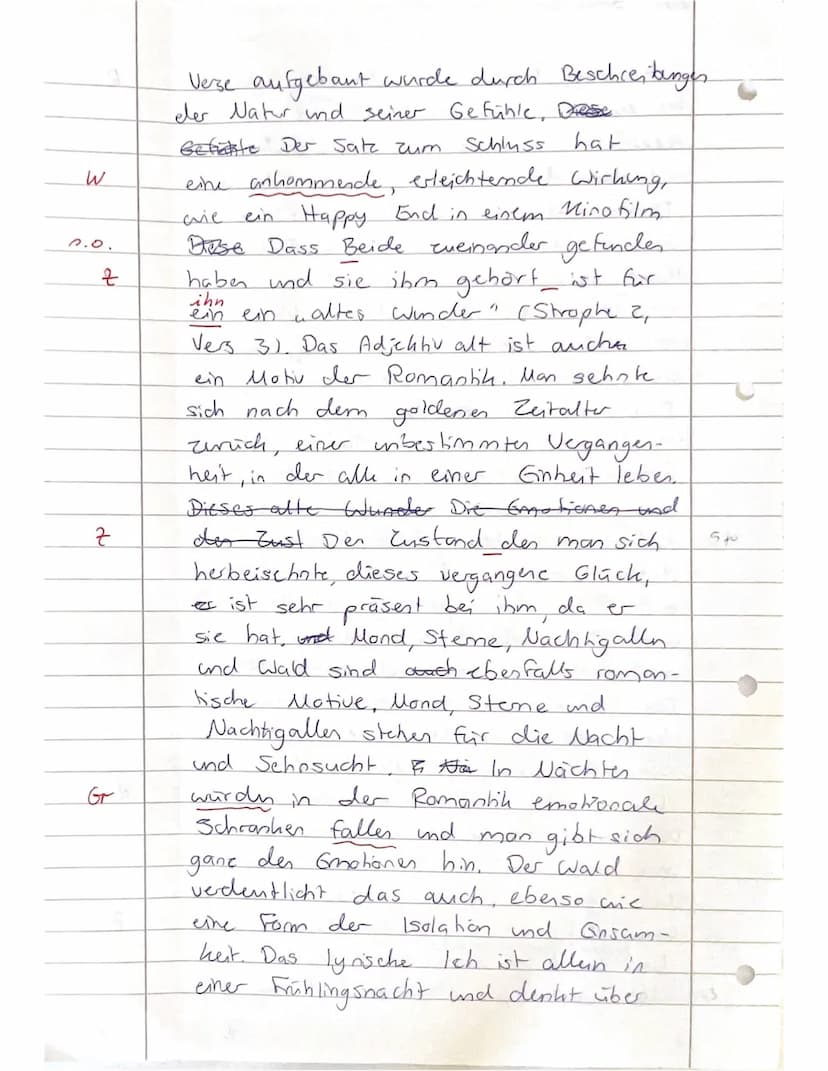 Verse aufgebaut wurde durch Beschreibungen
der Natur und seiner Gefühle. Diese
Gefühle Der Satz zum Schluss hat
W eine ankommende, erleichternde Wirkung,
wie ein Happy End in einem Kinofilm
s.o. Diese Dass Beide zueinander gefunden
Z haben und sie ihm gehört ist für
ihn
ein ein „altes Wunder" (Strophe 2,
Vers 3). Das Adjektiv alt ist auch
ein Motiv der Romantik. Man sehnte
sich nach dem goldenen Zeitalter
zurück, einer unbestimmten Vergangen-
heit, in der alle in einer Einheit leben.
Dieses alte Wunder Die Emotionen und
Z den Zust Den Zustand den man sich
herbeisehnte, dieses vergangene Glück,
er ist sehr präsent bei ihm, da er
sie hat. und Mond, Sterne, Nachtigalln
und Wald sind auch ebenfalls roman-
tische Motive, Mond, Sterne und
Nachtigallen stehen für die Nacht
und Sehnsucht. In Nächten
Gr würdn in der Romantik emotionale
Schranken fallen und man gibt sich
ganz den Emotionen hin. Der Wald
verdeutlicht das auch, ebenso wie
eine Form der Isolation und Einsam-
keit. Das lyrische Ich ist allein in
einer Frühlingsnacht und denkt über